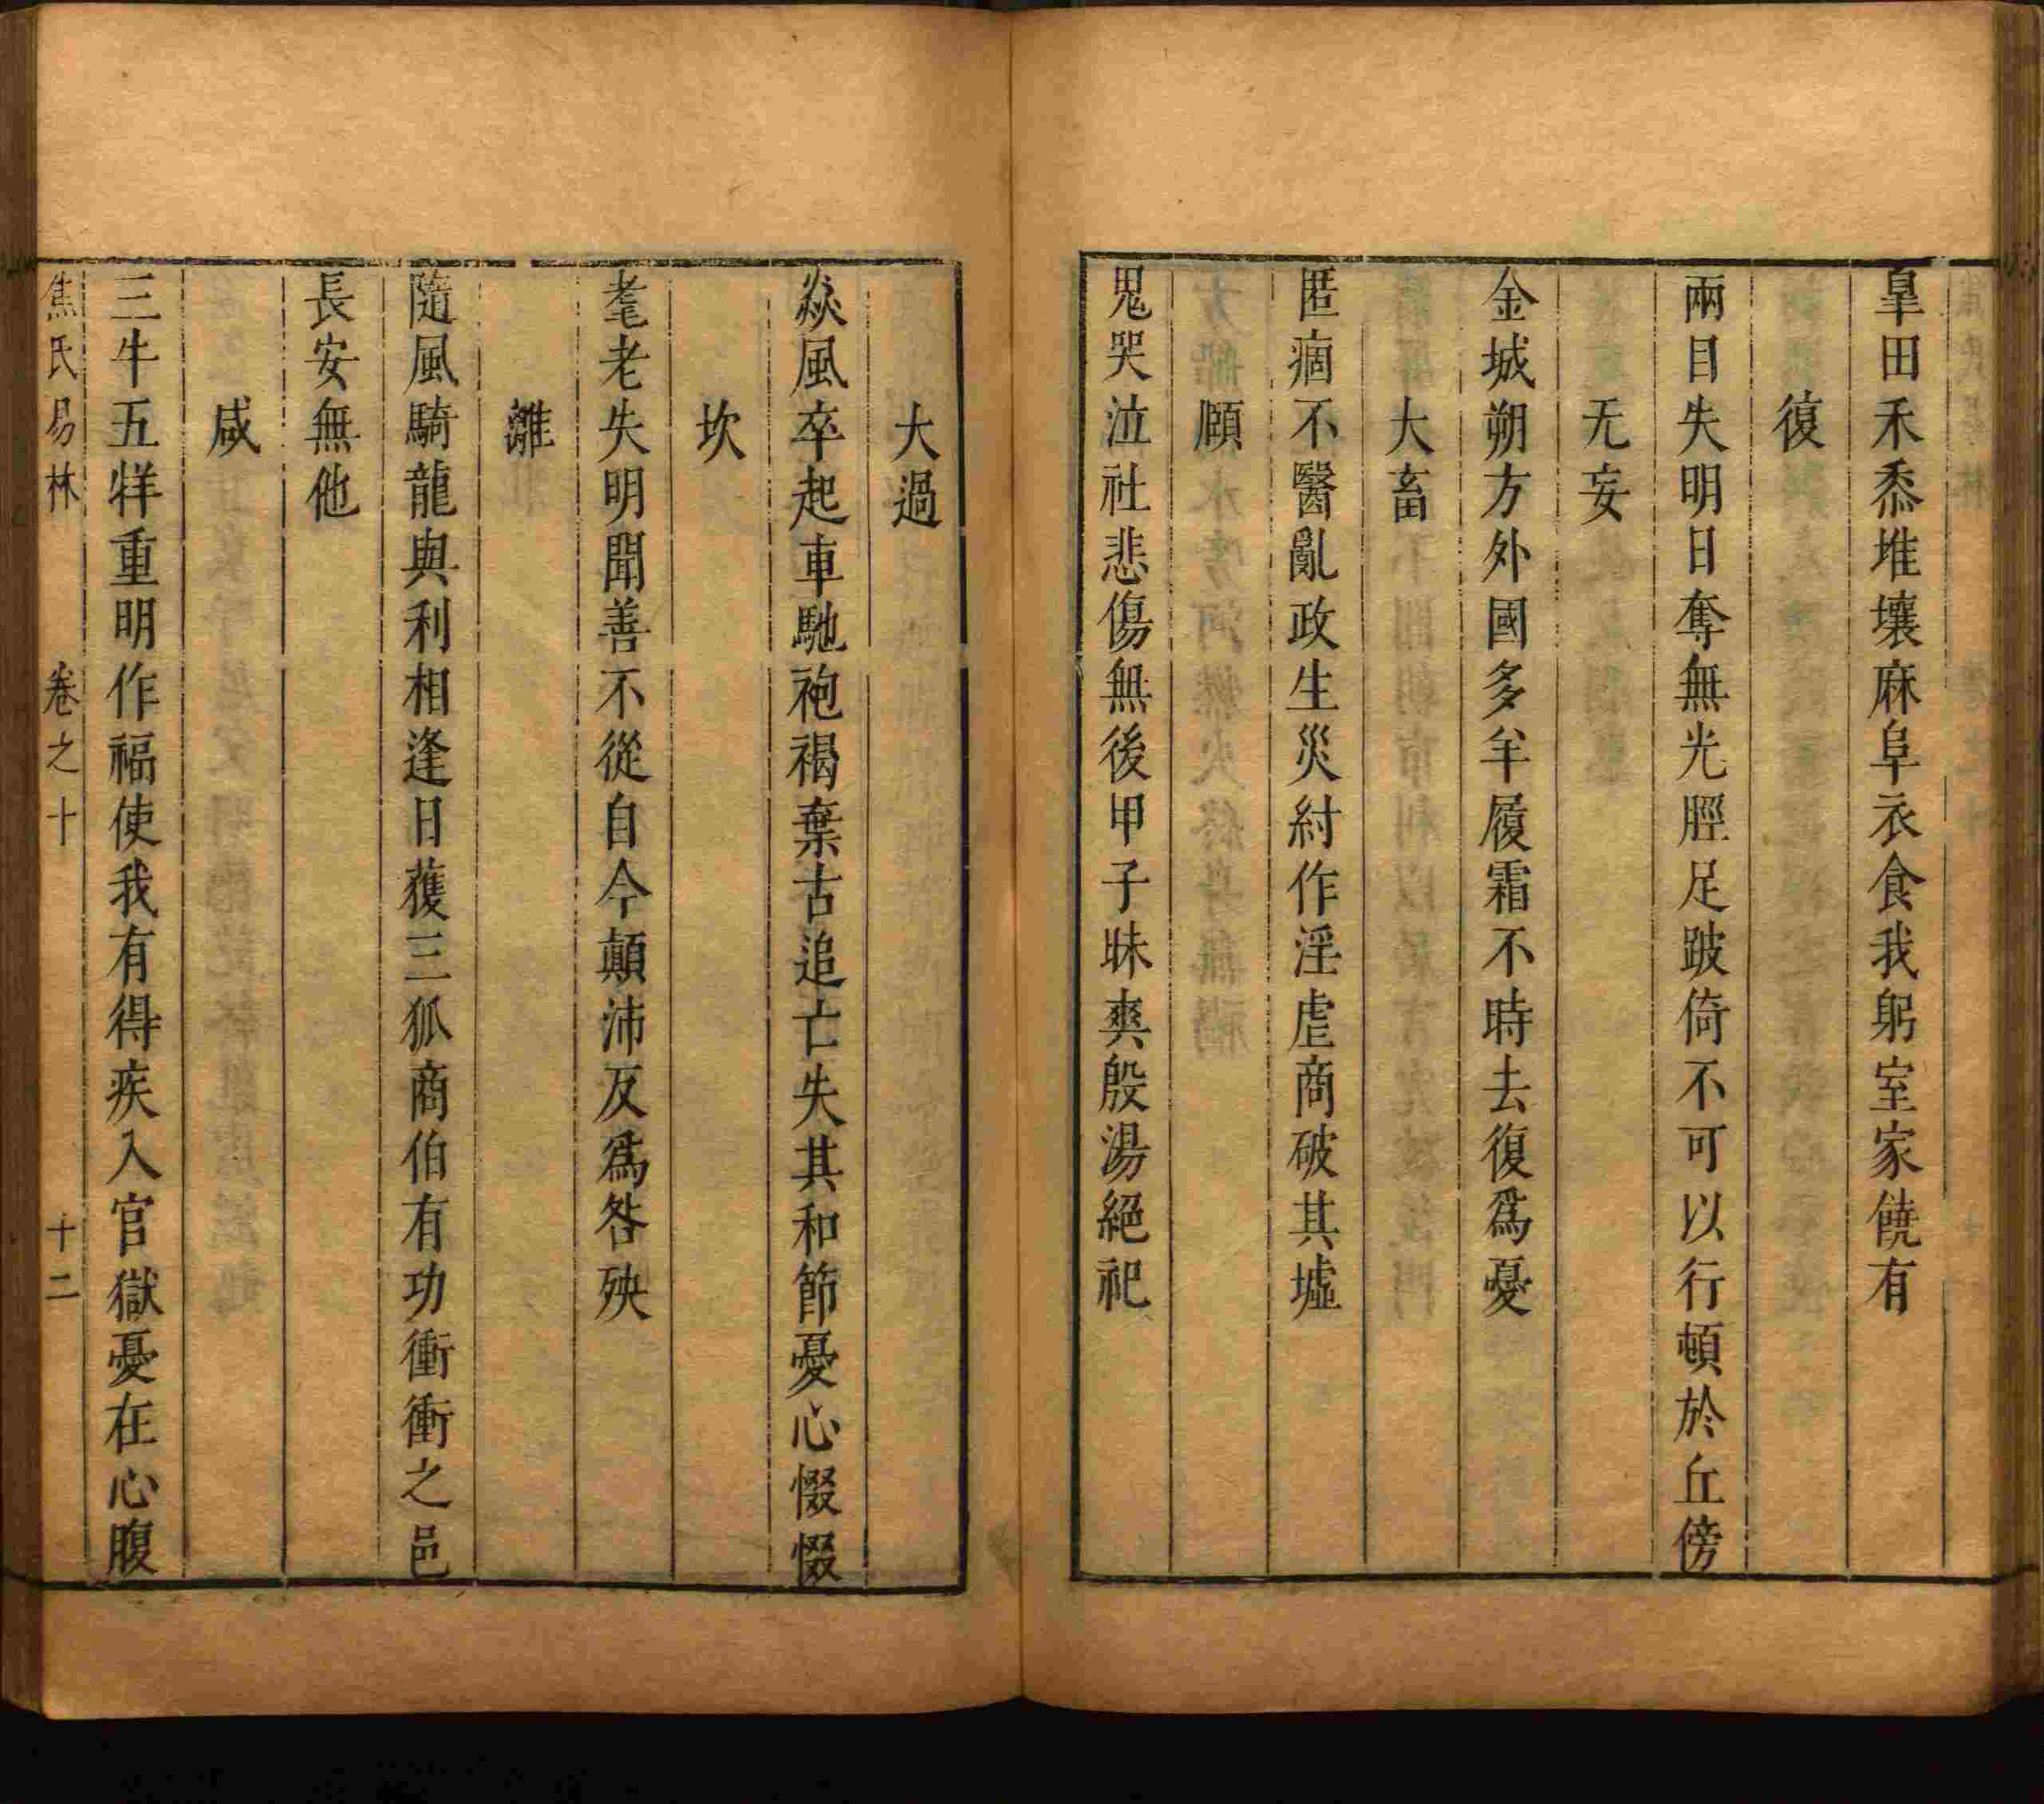 皐田禾黍堆壤麻阜衣食我躬室家饒有
復
兩目失明日奪無光脛足跛倚不可以行頓於丘傍
无妄
金城朔方外國多羊履霜不時去復爲憂
大畜
匿痼不醫亂政生災紂作淫虐商破其墟
頤
鬼哭泣社悲傷無後甲子昧爽殷湯絕祀
大過
焱風卒起車馳袍褐棄古追亡失其和節憂心惙惙
坎
耄老失明聞善不從自今顛沛反爲咎殃
離
隨風騎龍與利相逢日獲三狐商伯有功衝衝之邑
長安無他
咸
三牛五牂重明作福使我有得疾入官獄憂在心腹
焦氏易林 卷之十 十二